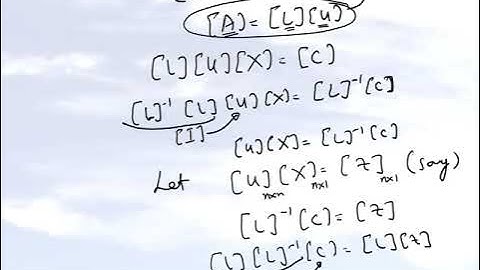 [A] = [L][U]
[L][U][X] = [C]
[L]⁻¹ [L] [U] [X] = [L]⁻¹ [C]
[I]
[U][X] = [L]⁻¹ [C]
Let [U]n×n [X]n×1 = [Z]n×1 (say)
[L]⁻¹ [C] = [Z]
[L] [L]⁻¹ [C] = [L] [Z]